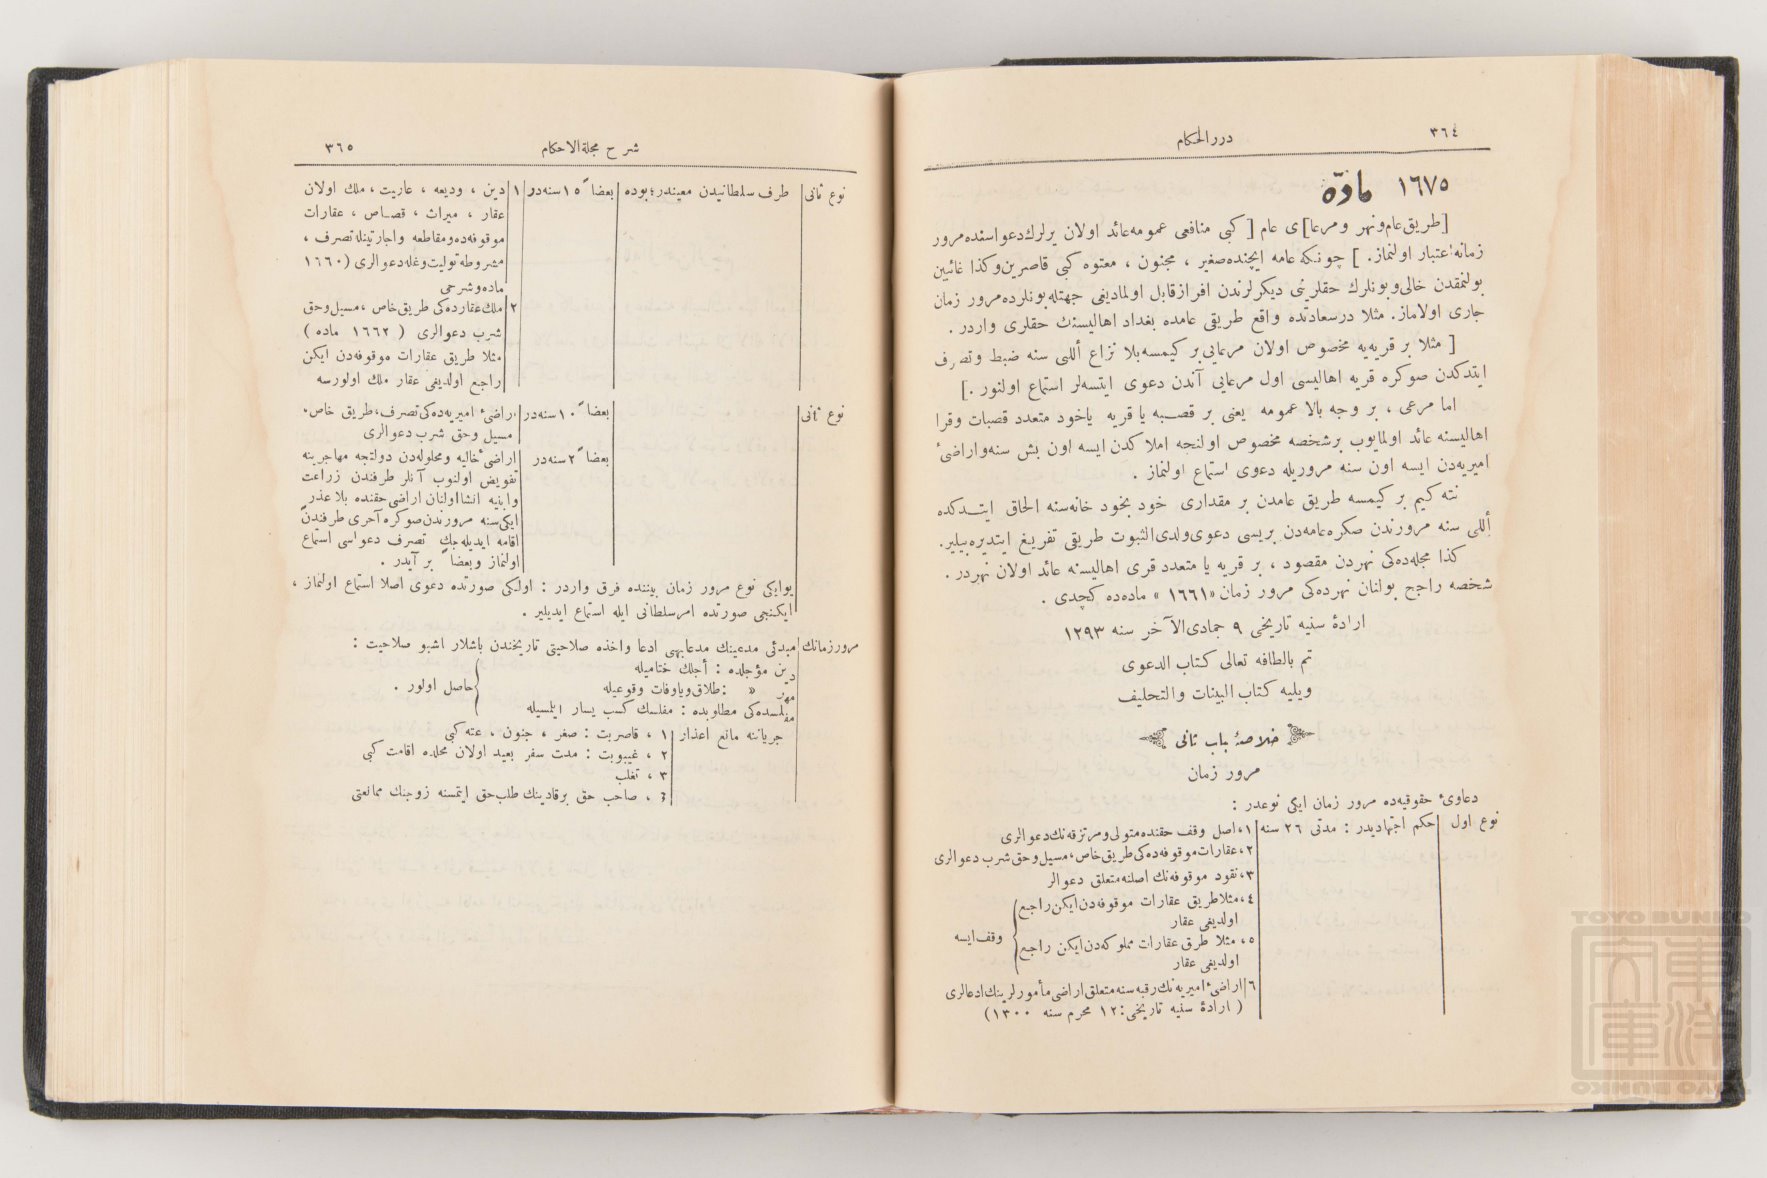 ٣٦٤
دررالحكام
١٦٧٥ مادّه
[طريق عام ونهر ومرعا]ى عام [ كبى منافعى عمومه عائد اولان يرلرك دعواسنده مرور
زمانه اعتبار اولنماز. ] چونكه عامه ايچنده صغير ، مجنون ، معتوه كبى قاصرين وكذا غائبين
بولنمقدن خالى وبونلرك حقلرينى ديكرلرندن افراز قابل اولماديغى جهتله بونلرده مرور زمان
جارى اولاماز. مثلا درسعادتده واقع طريقى عامده بغداد اهاليسنك حقلرى واردر .
[ مثلا بر قريه‌يه مخصوص اولان مرعايى بر كيمسه بلا نزاع أللى سنه ضبط وتصرف
ايتدكدن صوكره قريه اهاليسى اول مرعايى آندن دعوى ايتسه‌لر استماع اولنور .]
اما مرعى ، بر وجه بالا عمومه يعنى بر قصبه يا قريه ياخود متعدد قصبات وقرا
اهاليسنه عائد اولمايوب بر شخصه مخصوص اولنجه املاكدن ايسه اون بش سنه واراضئ
اميريه‌دن ايسه اون سنه مروريله دعوى استماع اولنماز .
نته كيم بر كيمسه طريق عامدن بر مقدارى خود بخود خانه‌سنه الحاق ايتدكده
أللى سنه مرورندن صكره عامه‌دن بريسى دعوى ولدى الثبوت طريقى تفريغ ايتديره‌بيلير.
كذا مجله‌ده‌كى نهردن مقصود ، بر قريه يا متعدد قرى اهاليسنه عائد اولان نهردر .
شخصه راجح بولنان نهرده‌كى مرور زمان «١٦٦١» ماده‌ده كچدى .
ارادهٔ سنيه تاريخى ٩ جمادى الآخر سنه ١٢٩٣
تم بالطافه تعالى كتاب الدعوى
ويليه كتاب البينات والتحليف
خلاصهٔ باب ثانى
مرور زمان
دعاوئ حقوقيه‌ده مرور زمان ايكى نوعدر :
نوع اول حكم اجتهاديدر : مدتى ٣٦ سنه ١، اصل وقف حقنده متولى ومرتزقه‌نك دعوالرى
٢، عقارات موقوفه‌ده‌كى طريق خاص، مسيل وحق شرب دعوالرى
٣، نقود موقوفه‌نك اصلنه متعلق دعوالر
٤، مثلا طريق عقارات موقوفه‌دن ايكن راجع
اولديغى عقار
وقف ايسه
٥، مثلا طرق عقارات مملوكه‌دن ايكن راجع
اولديغى عقار
٦ اراضئ اميريه‌نك رقبه‌سنه متعلق اراضى مأمورلرينك ادعالرى
( ارادهٔ سنيه تاريخى: ١٢ محرم سنه ١٣٠٠)
شرح مجلة الاحكام
٣٦٥
نوع ثانى طرف سلطانيدن معيندر؛ بوده بعضاً ١٥ سنه‌در ١ دين ، وديعه ، عاريت، ملك اولان
عقار ، ميراث ، قصاص ، عقارات
موقوفه‌ده ومقاطعه واجارتينله تصرف ،
مشروطه توليت وغله دعوالرى (١٦٦٠
ماده وشرحى
٢ ملك عقارده‌كى طريق خاص ،مسيل وحق
شرب دعوالرى ( ١٦٦٢ ماده )
مثلا طريق عقارات موقوفه‌دن ايكن
راجع اولديغى عقار ملك اولورسه
نوع ثانى بعضاً ١٠ سنه‌در اراضئ اميريه‌ده‌كى تصرف، طريق خاص،
مسيل وحق شرب دعوالرى
بعضاً ٢ سنه‌در اراضئ خاليه ومحلوله‌دن دولتجه مهاجرينه
تفويض اولنوب آنلر طرفندن زراعت
وابنيه انشا اولنان اراضى حقنده بلا عذر
ايكى سنه مرورندن صوكره آخرى طرفندن
اقامه ايديله‌جك تصرف دعواسى استماع
اولنماز وبعضاً بر آيدر .
بو ايكى نوع مرور زمان بيننده فرق واردر : اولكى صورتده دعوى اصلا استماع اولنماز ،
ايكنجى صورتده امر سلطانى ايله استماع ايديلير .
مرور زمانك مبدئى مدعينك مدعابهى ادعا واخذه صلاحيتى تاريخندن باشلار اشبو صلاحيت :
دين مؤجلده : أجلك ختاميله
مهر » : طلاق وياوفات وقوعيله
حاصل اولور .
مفلسده‌كى مطلوبده : مفلسك كسب يسار ايلمسيله
جرياننه مانع اعذار ١ ، قاصريت : صغر ، جنون ، عته كبى
٢ ، غيبوبت : مدت سفر بعيد اولان محلده اقامت كبى
٣ ، تغلب
٤ ، صاحب حق برقادينك طلب حق ايتمسنه زوجنك ممانعتى
TOYO BUNKO
東洋文庫
TOYO BUNKO